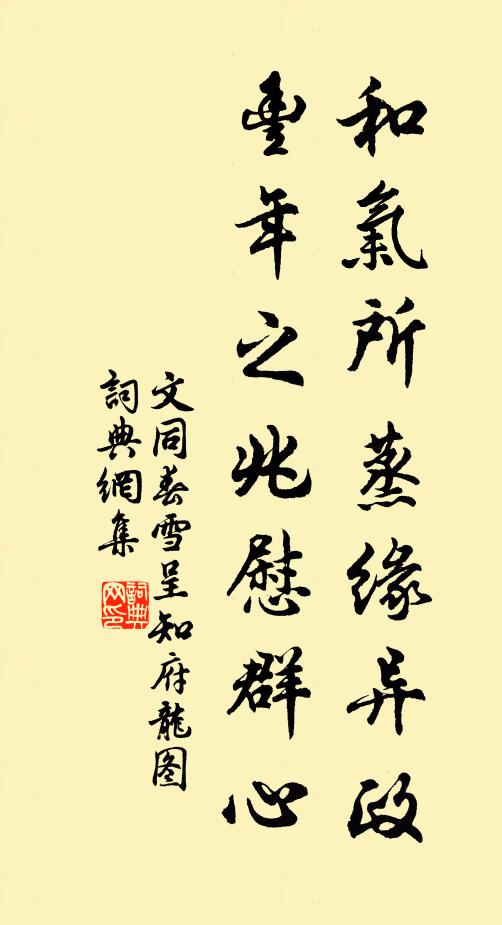 和氣所蒸緣异政
豐年之兆慰群心
文同春雪呈知府龍图
詞典網集
詞典网印